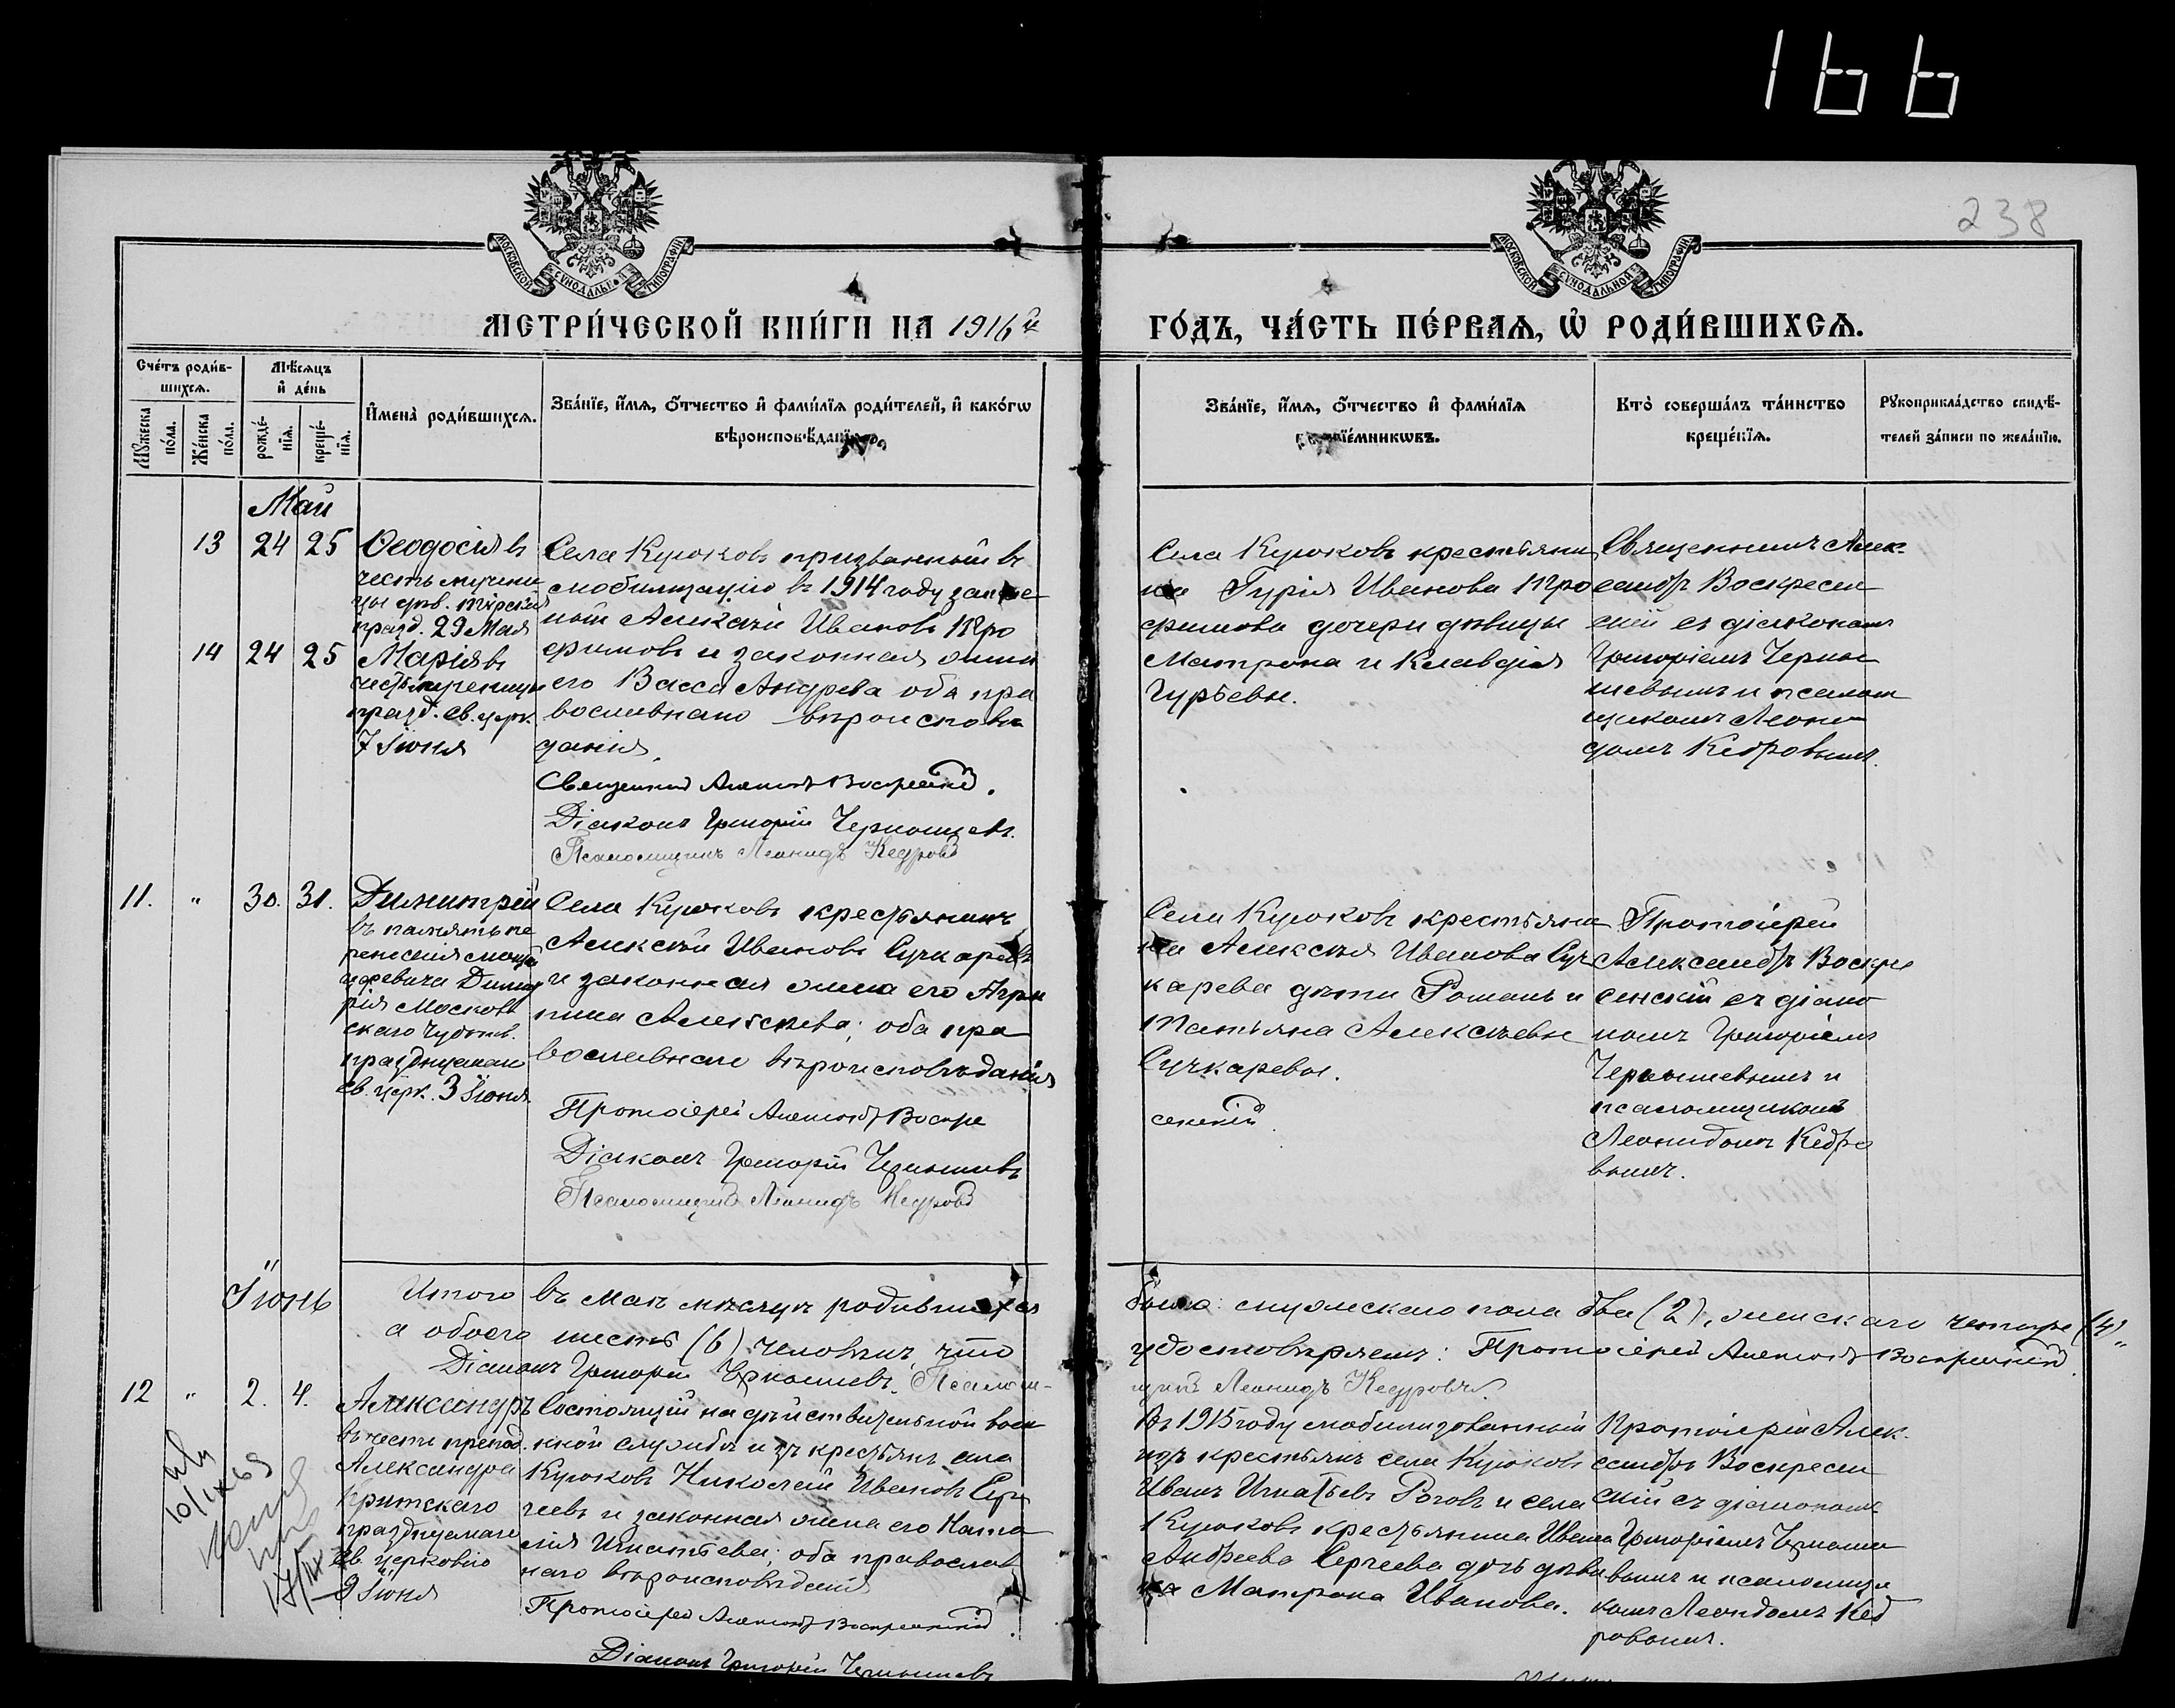 166
238
МОСКОВСКОЙ СѴНОДАЛЬНОЙ ТИПОГРАФІИ
МОСКОВСКОЙ СѴНОДАЛЬНОЙ ТИПОГРАФІИ
МЕТРИ́ЧЕСКОЙ КНИ́ГИ НА 1916й
ГО́ДЪ, ЧА́СТЬ ПЕ́РВАЯ, Ѿ РОДИ́ВШИХСЯ.
Сче́тъ роди́в-
шихся.
Мѣ́сяцъ
и҆ де́нь
Мꙋ́жеска
по́ла.
Же́нска
по́ла.
рожде́-
нїя.
креще́-
нїя.
И҆мена̀ роди́вшихся.
Зва́нїе, и҆́мя, ѻ҆́тчество и҆ фами́лїя роди́телей, и҆ како́гѡ
вѣроисповѣ́данїя.
Зва́нїе, и҆́мя, ѻ҆́тчество и҆ фами́лїя
воспрїе́мникѡвъ.
Кто̀ соверша́лъ та́инство
креще́нїя.
Рꙋкоприкла́дство свидѣ́-
телей за́писи по жела́нїю.
Май
13 24 25
Ѳеодосія въ
честь мучени
цы дѣв. тирскія
празд. 29 Мая
14 24 25
Марія въ
честь мученицы
празд. св. церк.
7 Іюня
Села Курюковъ призванный въ
мобилизацію въ 1914 году запас
ной Алексѣй Ивановъ Тро
фимовъ и законная жена
его Васса Андреева оба пра
вославнаго вѣроисповѣ
данія.
Священникъ Александръ Воскресенскій.
Діаконъ Григорій Чернышевъ.
Псаломщикъ Леонидъ Кедровъ
Села Курюковъ крестьяни
на Гурія Иванова Тро
фимова дочери дѣвицы
Матрона и Клавдія
Гурьевы.
Священникъ Алек
сандръ Воскресен
скій съ діакономъ
Григоріемъ Черны
шевымъ и псалом
щикомъ Леони
домъ Кедровымъ.
11. " 30. 31.
Димитрій
въ память пе
ренесенія мощей
царевича Димит
рія Москов
скаго Чудотв.
празднуемаго
св. церк. 3 Іюня.
Села Курюковъ крестьянинъ
Алексѣй Ивановъ Сучкаревъ
и законная жена его Агрип
пина Алексѣева; оба пра
вославнаго вѣроисповѣданія
Протоіерей Александръ Воскре
Діаконъ Григорій Чернышевъ
Псаломщикъ Леонидъ Кедровъ
Села Курюковъ крестьяни
на Алексѣя Иванова Суч
карева дѣти Романъ и
Татьяна Алексѣевы
Сучкаревы.
сенскій.
Протоіерей
Александръ Воскре
сенскій съ діако
номъ Григоріемъ
Чернышевымъ и
псаломщикомъ
Леонидомъ Кедро
вымъ.
Іюнь
Итого въ Маѣ мѣсяцѣ родившихся
было: мужескаго пола два (2), женскаго четыре (4),
а обоего шесть (6) человѣкъ, что
удостовѣряемъ: Протоіерей Александръ Воскресенскій.
Діаконъ Григорій Чернышевъ. Псалом-
щикъ Леонидъ Кедровъ.
12 " 2. 4.
Александръ
въ честь препод.
Александра
Критскаго
празднуемаго
св. церковію
9 Іюня
Состоящій на дѣйствительной воен
ной службѣ изъ крестьянъ села
Курюковъ Николай Ивановъ Сер
геевъ и законная жена его Ната
лія Игнатьева; оба православ
наго вѣроисповѣданія
Протоіерей Александръ Воскресенскій.
Діаконъ Григорій Чернышевъ
Въ 1915 году мобилизованный
изъ крестьянъ села Курюковъ
Иванъ Игнатьевъ Роговъ и села
Курюковъ крестьянина Ивана
Андреева Сергеева дочь дѣви
ца Матрона Иванова.
Протоіерей Алек
сандръ Воскресен
скій съ діакономъ
Григоріемъ Черныше
вымъ и псаломщи
комъ Леонидомъ Кед
ровымъ.